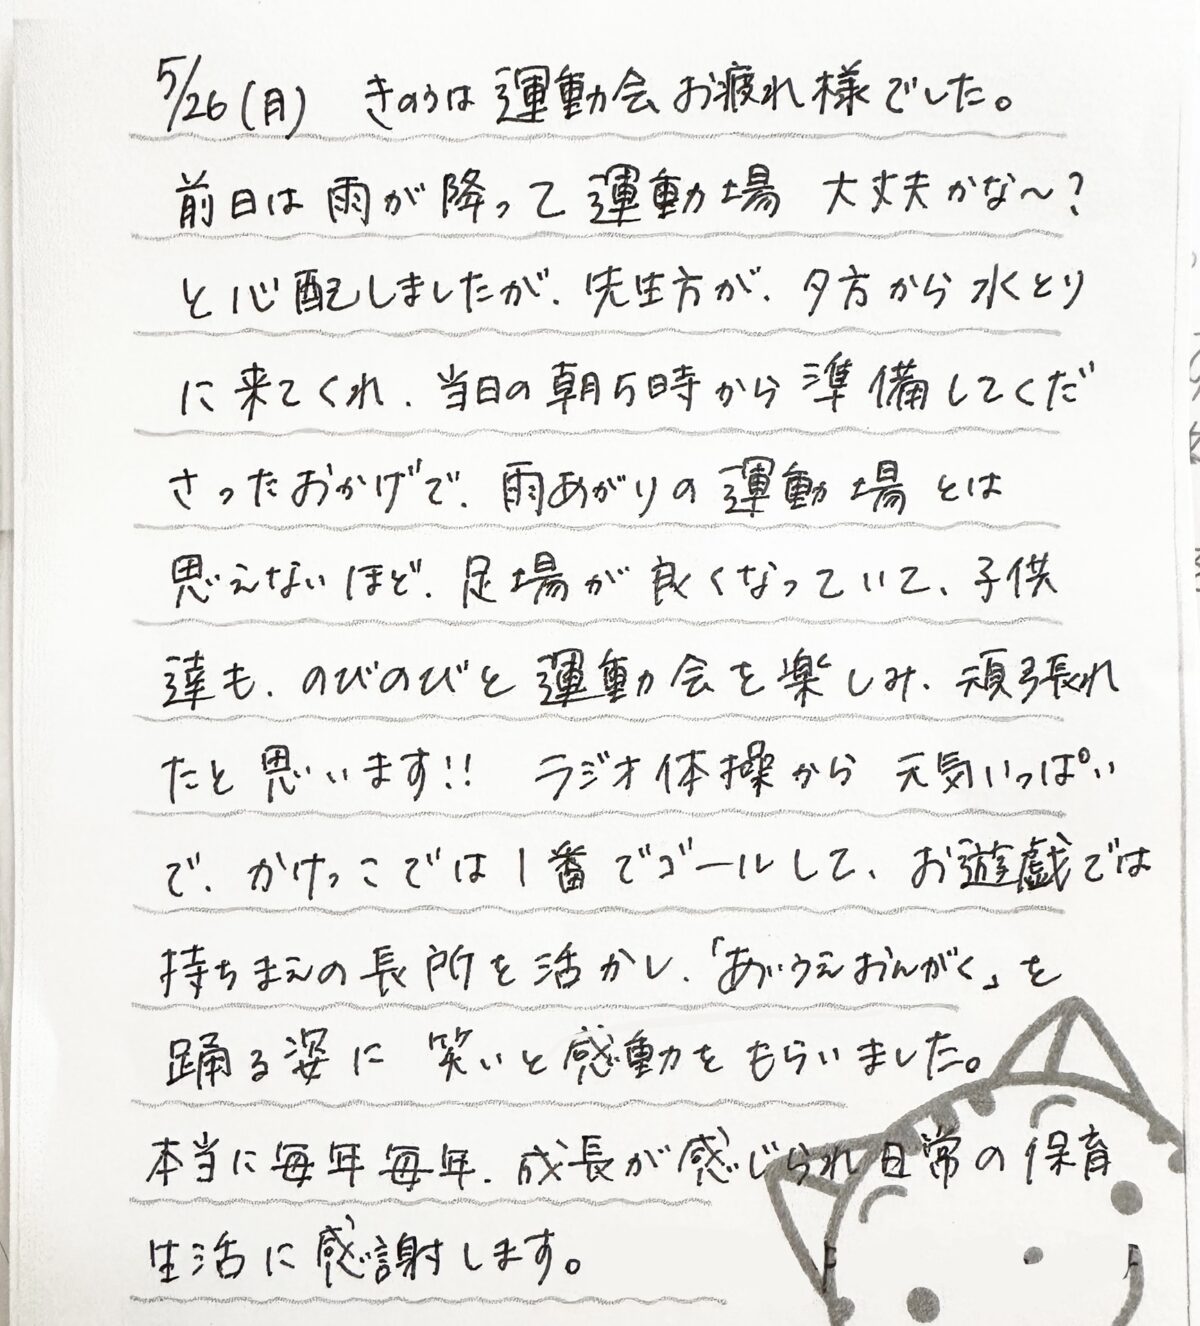 5/26(月) きのうは運動会お疲れ様でした。
前日は雨が降って運動場 大丈夫かな〜?
と心配しましたが、先生方が、夕方から水とり
に来てくれ、当日の朝5時から準備してくだ
さったおかげで、雨あがりの運動場とは
思えないほど、足場が良くなっていて、子供
達も、のびのびと運動会を楽しみ、頑張れ
たと思います!! ラジオ体操から元気いっぱい
で、かけっこでは1番でゴールして、お遊戯では
持ちまえの長所を活かし、「あいうえおんがく」を
踊る姿に 笑いと感動をもらいました。
本当に毎年毎年、成長が感じられ日常の保育
生活に感謝します。